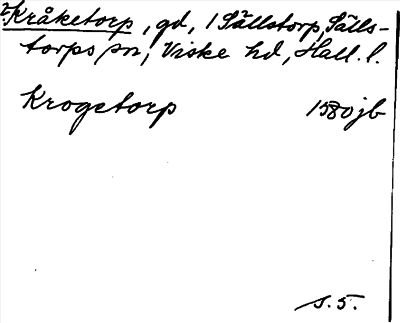 Kråketorp, gd, 1 Sällstorp, Sälls-
torps sn, Viske hd, Hall. l.
Krogetorp 1580 jb
s. 5.